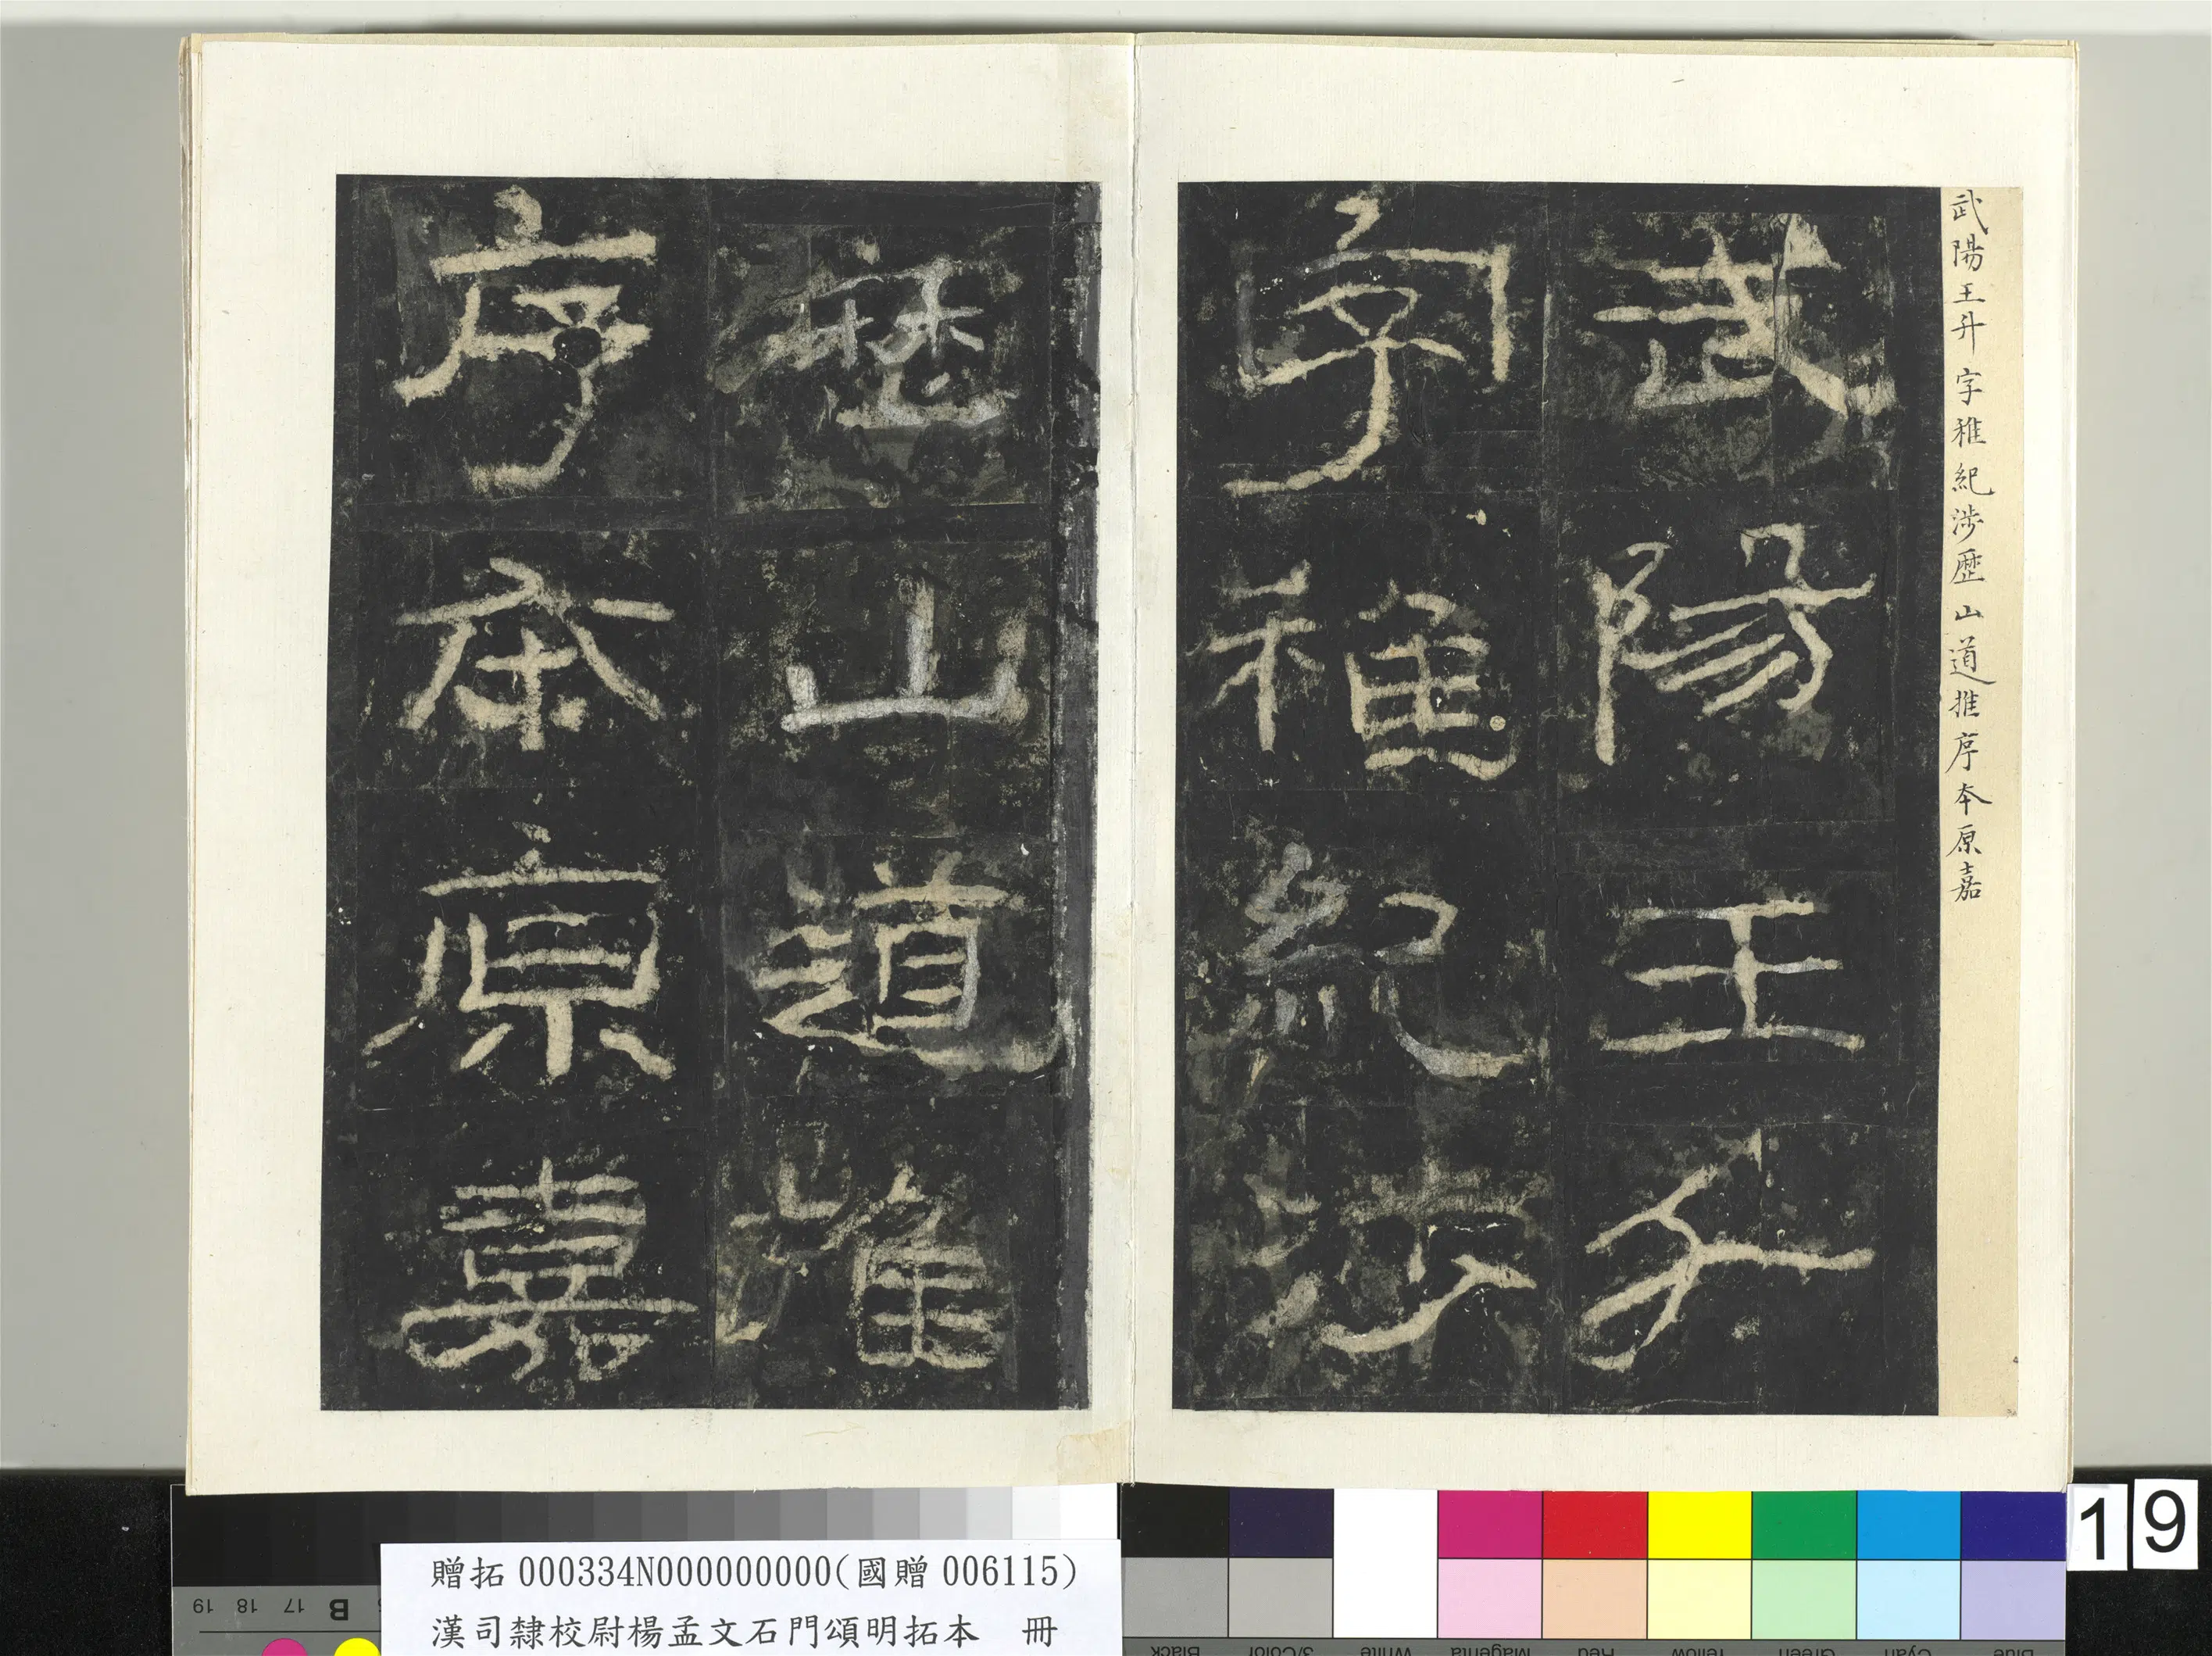 武陽王升字稚紀涉歷山道推序本原嘉
武陽王升
字稚紀涉
歷山道推
序本原嘉
贈拓000334N000000000(國贈006115)
漢司隸校尉楊孟文石門頌明拓本 冊
19
19 18 17 B
Black 3/Color White Magenta Red Yellow Green Cyan Blue